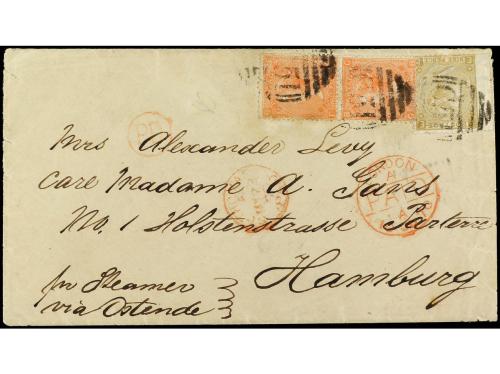 PD
Mrs Alexander Levy
care Madame A. Gans
No. 1 Holstenstrasse Parterre
Hamburg
pr Steamer
via Ostende